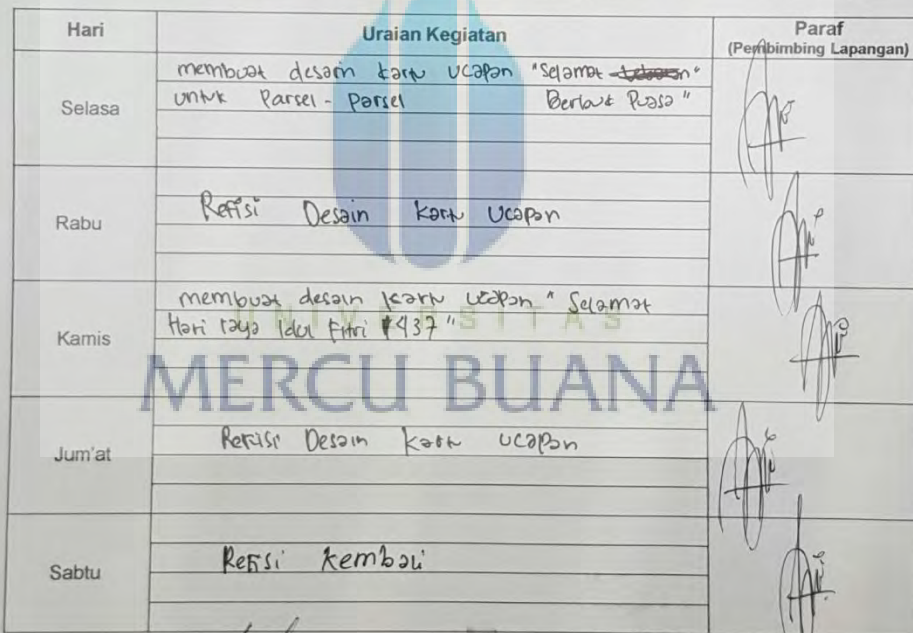 Hari Uraian Kegiatan Paraf
(Pembimbing Lapangan)
Selasa
membuat desain kartu ucapan "Selamat
untuk Parsel - Parsel Berbuk Puasa"
Rabu
Refisi Desain kartu Ucapan
Kamis
membuat desain kartu ucapan "Selamat
Hari raya Idul Fitri 1437"
UNIVERSITAS
MERCU BUANA
Jum'at
Refisi Desain kartu ucapan
Sabtu
Refisi kembali